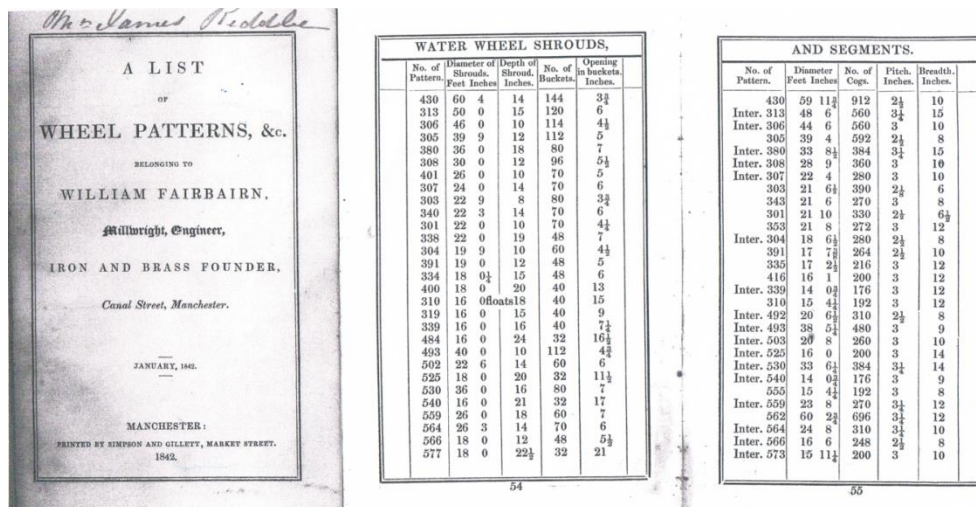 Mr James Kiddle
A LIST
OF
WHEEL PATTERNS, &c.
BELONGING TO
WILLIAM FAIRBAIRN,
Millwright, Engineer,
IRON AND BRASS FOUNDER,
Canal Street, Manchester.
JANUARY, 1842.
MANCHESTER:
PRINTED BY SIMPSON AND GILLETT, MARKET STREET.
1842.
WATER WHEEL SHROUDS,
No. of Pattern. Diameter of Shrouds. Feet Inches Depth of Shroud. Inches. No. of Buckets. Opening in buckets. Inches.
430 60 4 14 144 3¾
313 50 0 15 120 6
306 46 0 10 114 4½
305 39 9 12 112 5
380 36 0 18 80 7
308 30 0 12 96 5½
401 26 0 10 70 5
307 24 0 14 70 6
303 22 9 8 80 3¾
340 22 3 14 70 6
301 22 0 10 70 4¼
338 22 0 19 48 7
304 19 9 10 60 4½
391 19 0 12 48 5
334 18 0¼ 15 48 6
400 18 0 20 40 13
310 16 0 floats 18 40 15
319 16 0 15 40 9
339 16 0 16 40 7¼
484 16 0 24 32 16½
493 40 0 10 112 4¾
502 22 6 14 60 6
525 18 0 20 32 11½
530 36 0 16 80 7
540 16 0 21 32 17
559 26 0 18 60 7
564 26 3 14 70 6
566 18 0 12 48 5½
577 18 0 22½ 32 21
54
AND SEGMENTS.
No. of Pattern. Diameter Feet Inches No. of Cogs. Pitch. Inches. Breadth. Inches.
430 59 11¾ 912 2½ 10
Inter. 313 48 6 560 3¼ 15
Inter. 306 44 6 560 3 10
305 39 4 592 2½ 8
Inter. 380 33 8½ 384 3¼ 15
Inter. 308 28 9 360 3 10
Inter. 307 22 4 280 3 10
303 21 6½ 390 2⅛ 6
343 21 6 270 3 8
301 21 10 330 2½ 6½
353 21 8 272 3 12
Inter. 304 18 6½ 280 2½ 8
391 17 7⅜ 264 2½ 10
335 17 2½ 216 3 12
416 16 1 200 3 12
Inter. 339 14 0¾ 176 3 12
310 15 4¼ 192 3 12
Inter. 492 20 6½ 310 2½ 8
Inter. 493 38 5¼ 480 3 9
Inter. 503 20 8 260 3 10
Inter. 525 16 0 200 3 14
Inter. 530 33 6¼ 384 3¼ 14
Inter. 540 14 0¾ 176 3 9
555 15 4¼ 192 3 8
Inter. 559 23 8 270 3¼ 12
562 60 2¾ 696 3¼ 12
Inter. 564 24 8 310 3¼ 10
Inter. 566 16 6 248 2½ 8
Inter. 573 15 11¼ 200 3 10
55